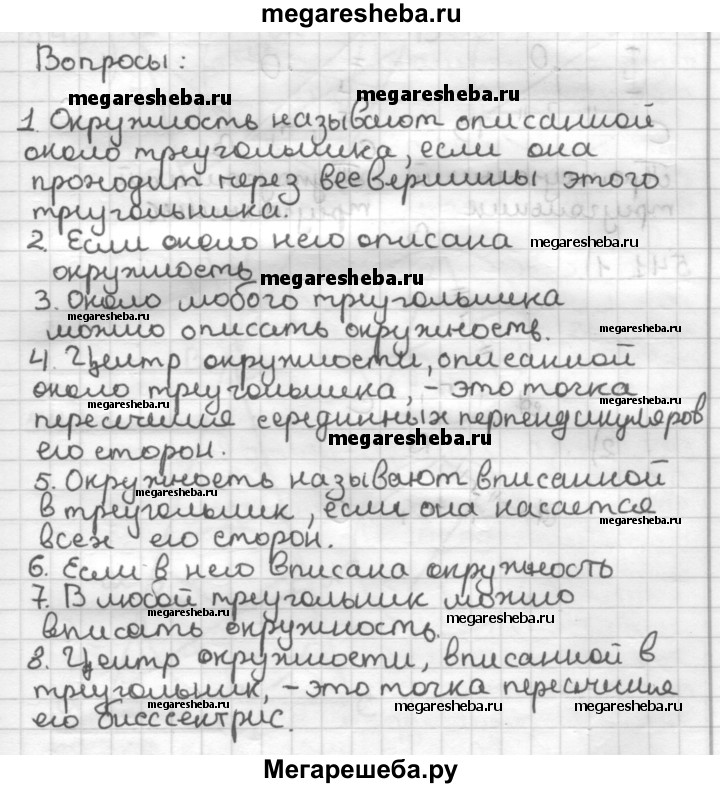 megaresheba.ru
Вопросы:
megaresheba.ru megaresheba.ru
1. Окружность называют описанной
около треугольника, если она
проходит через все вершины этого
треугольника.
2. Если около него описана megaresheba.ru
окружность megaresheba.ru
3. Около любого треугольника
megaresheba.ru megaresheba.ru
можно описать окружность.
4. Центр окружности, описанной
около треугольника, – это точка
megaresheba.ru megaresheba.ru
пересечения серединных перпендикуляров
его сторон. megaresheba.ru
5. Окружность называют вписанной
megaresheba.ru
в треугольник, если она касается
megaresheba.ru
всех его сторон.
6. Если в него вписана окружность
7. В любой треугольник можно
megaresheba.ru megaresheba.ru
вписать окружность.
8. Центр окружности, вписанной в
треугольник, – это точка пересечения
megaresheba.ru megaresheba.ru megaresheba.ru
его биссектрис.
Мегарешеба.ру